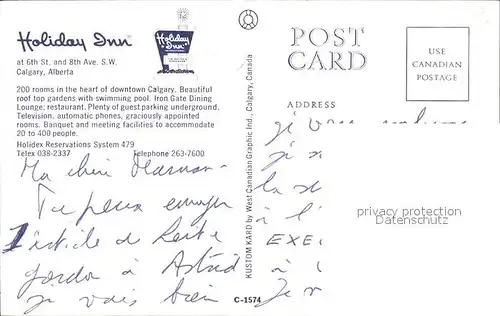 Holiday Inn®
Holiday Inn
at 6th St. and 8th Ave. S.W.
Calgary, Alberta
200 rooms in the heart of downtown Calgary. Beautiful
roof top gardens with swimming pool. Iron Gate Dining
Lounge; restaurant. Plenty of guest parking underground.
Television, automatic phones, graciously appointed
rooms. Banquet and meeting facilities to accommodate
20 to 400 people.
Holidex Reservations System 479
Telex 038-2337 Telephone 263-7600
Ma chère Maman
Tu peux envoyer
l'article de
Gordon à Astrid
je vais bien
C-1574
KUSTOM KARD by West Canadian Graphic Ind., Calgary, Canada
POST
CARD
USE
CANADIAN
POSTAGE
ADDRESS
je
la
à l'
EXE
à
Je
privacy protection
Datenschutz